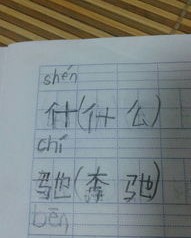 shén
什(什 么)
chí
驰(奔 驰)
bēn